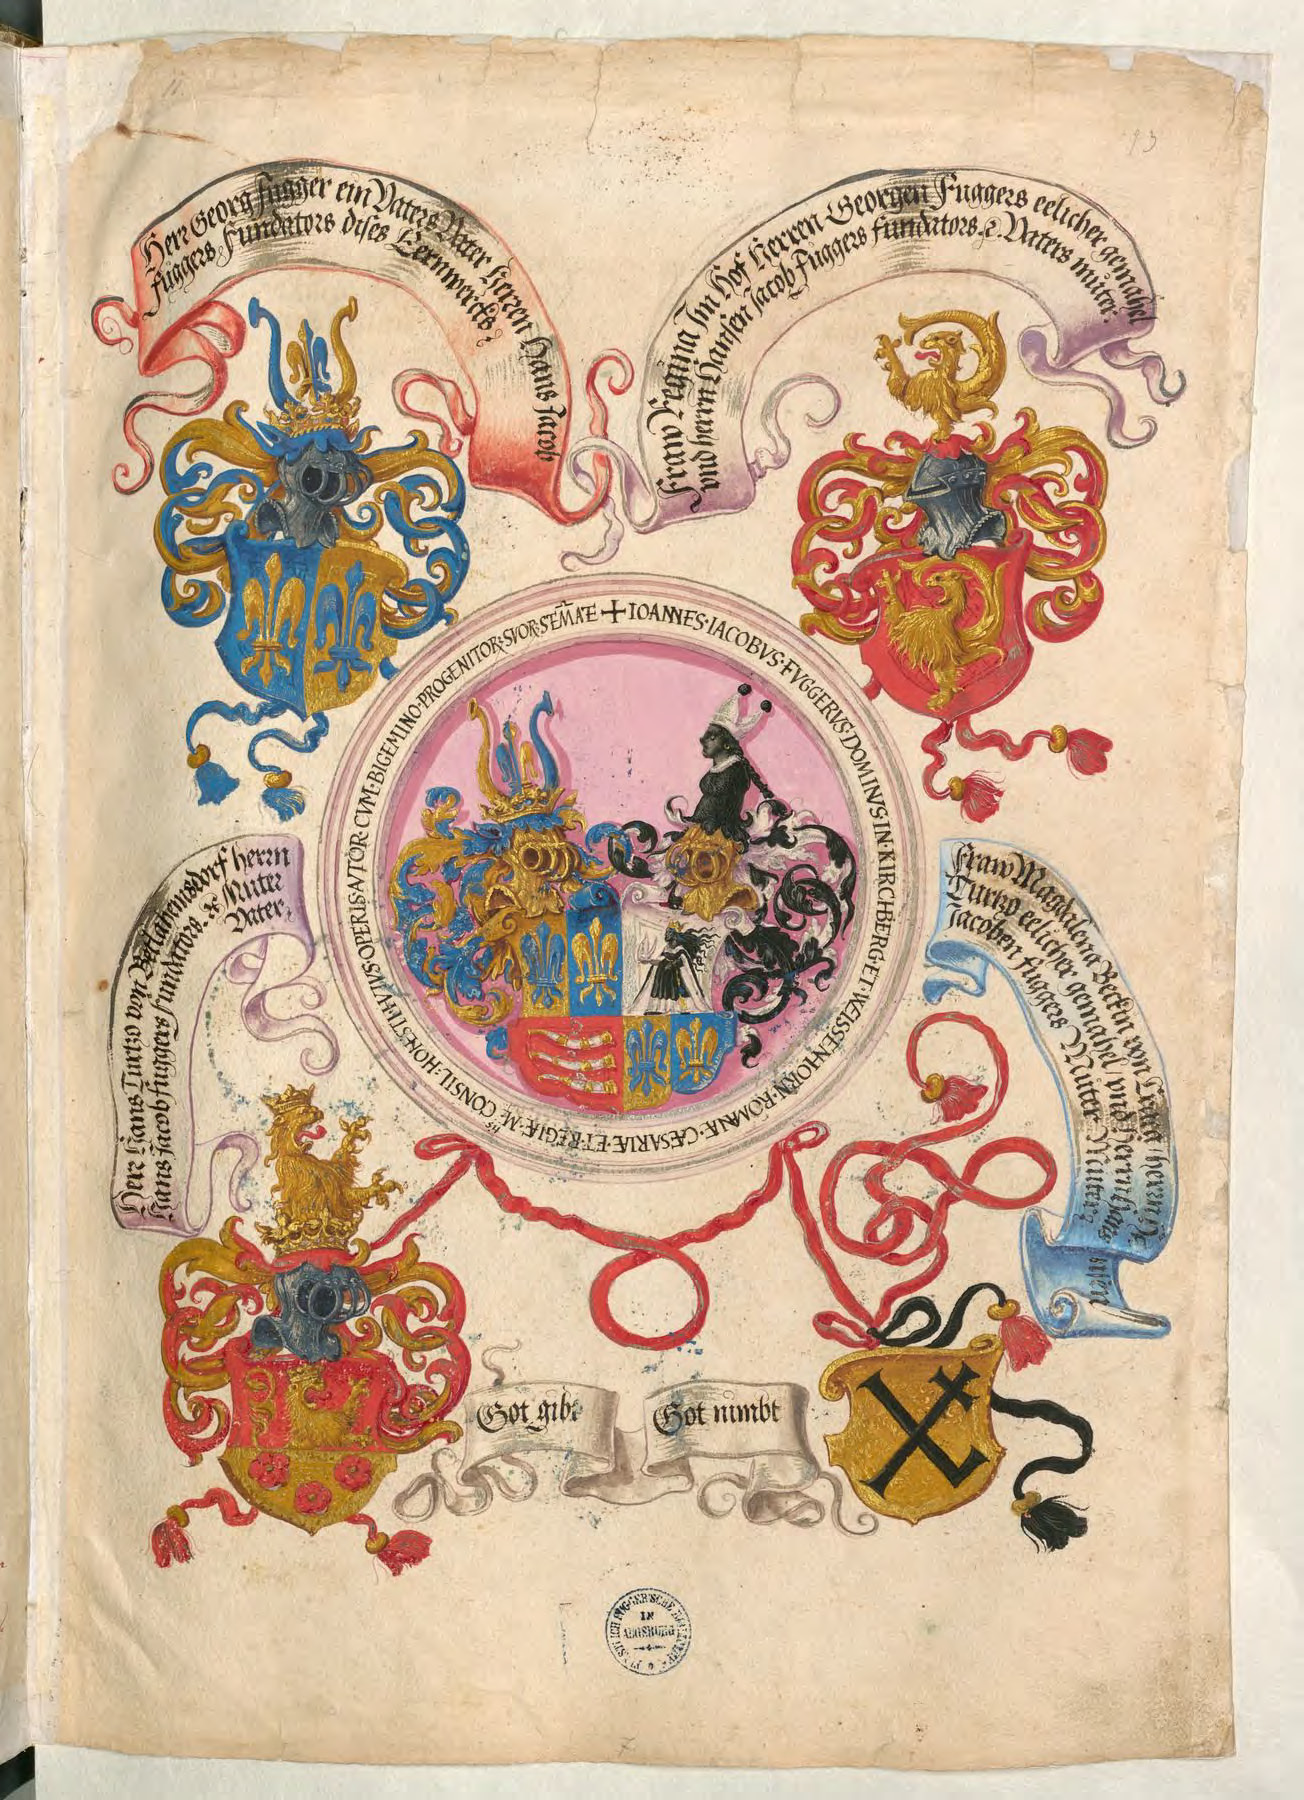 Herr Georg Fugger ein Vaters Vater Herren Hans Jacob
Fuggers Fundators dises Eernwercks.
Fraw Regina Im Hof Herren Georgen Fuggers eelicher gemahel
Hansen Jacob Fuggers fundators. &. Vaters můter.
✝ IOANNES · IACOBVS · FVGGERVS · DOMINVS · IN · KIRCHBERG · ET · WEISSENHORN · ROMANÆ · CÆSARIÆ · ET · REGIÆ · M · CONSIL · HONESTI · HVIVS · OPERIS · ATOR · CVM · BIGEMINO · PROGENITOR · SVOR · SEMATE
Herr Hans Turtzo von Betlahemsdorf herrn
Hans Jacob fuggers fundators. & Muter
Vater.
Fraw Magdalena Beckin von
Turtzo eelicher gemahel
Jacoben fuggers Muter Muter
Got gibt
Got nimbt
IN
AUGSBURG
93